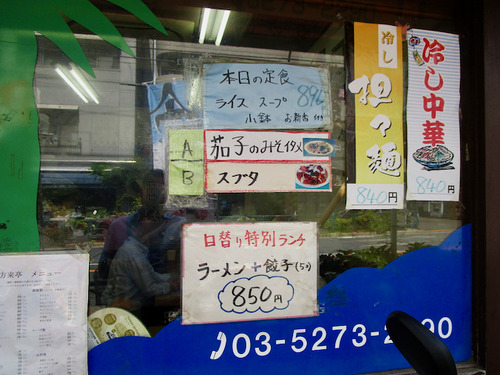 本日の定食
ライス スープ
小鉢 お新香 付
896
A
茄子のみそイタメ
B
スブタ
日替り特別ランチ
ラーメン+餃子(5ヶ)
850円
冷し
担々麺
840円
冷し中華
840円
方来亭 メニュー
03-5273-2
00